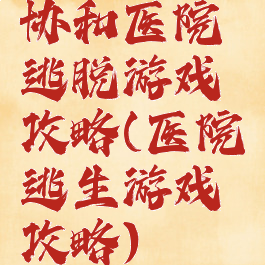 协和医院
逃脱游戏
攻略(医院
逃生游戏
攻略)